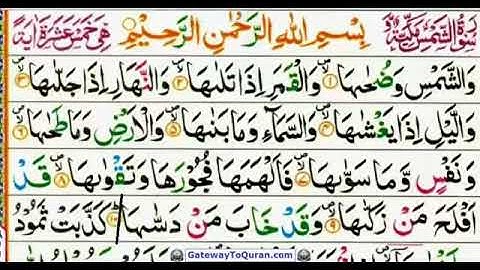 سُوْرَةُ الشَّمْسِ مَكِّيَّةٌ بِسْمِ اللّٰهِ الرَّحْمٰنِ الرَّحِيْمِ هِيَ خَمْسَ عَشْرَةَ اٰيَةً
وَالشَّمْسِ وَضُحٰىهَا ۝١ وَالْقَمَرِ اِذَا تَلٰىهَا ۝٢ وَالنَّهَارِ اِذَا جَلّٰىهَا ۝٣
وَالَّيْلِ اِذَا يَغْشٰىهَا ۝٤ وَالسَّمَآءِ وَمَا بَنٰىهَا ۝٥ وَالْاَرْضِ وَمَا طَحٰىهَا ۝٦
وَنَفْسٍ وَّمَا سَوّٰىهَا ۝٧ فَاَلْهَمَهَا فُجُوْرَهَا وَتَقْوٰىهَا ۝٨ قَدْ
اَفْلَحَ مَنْ زَكّٰىهَا ۝٩ وَقَدْ خَابَ مَنْ دَسّٰىهَا ۝١٠ كَذَّبَتْ ثَمُوْدُ
GatewayToQuran.com